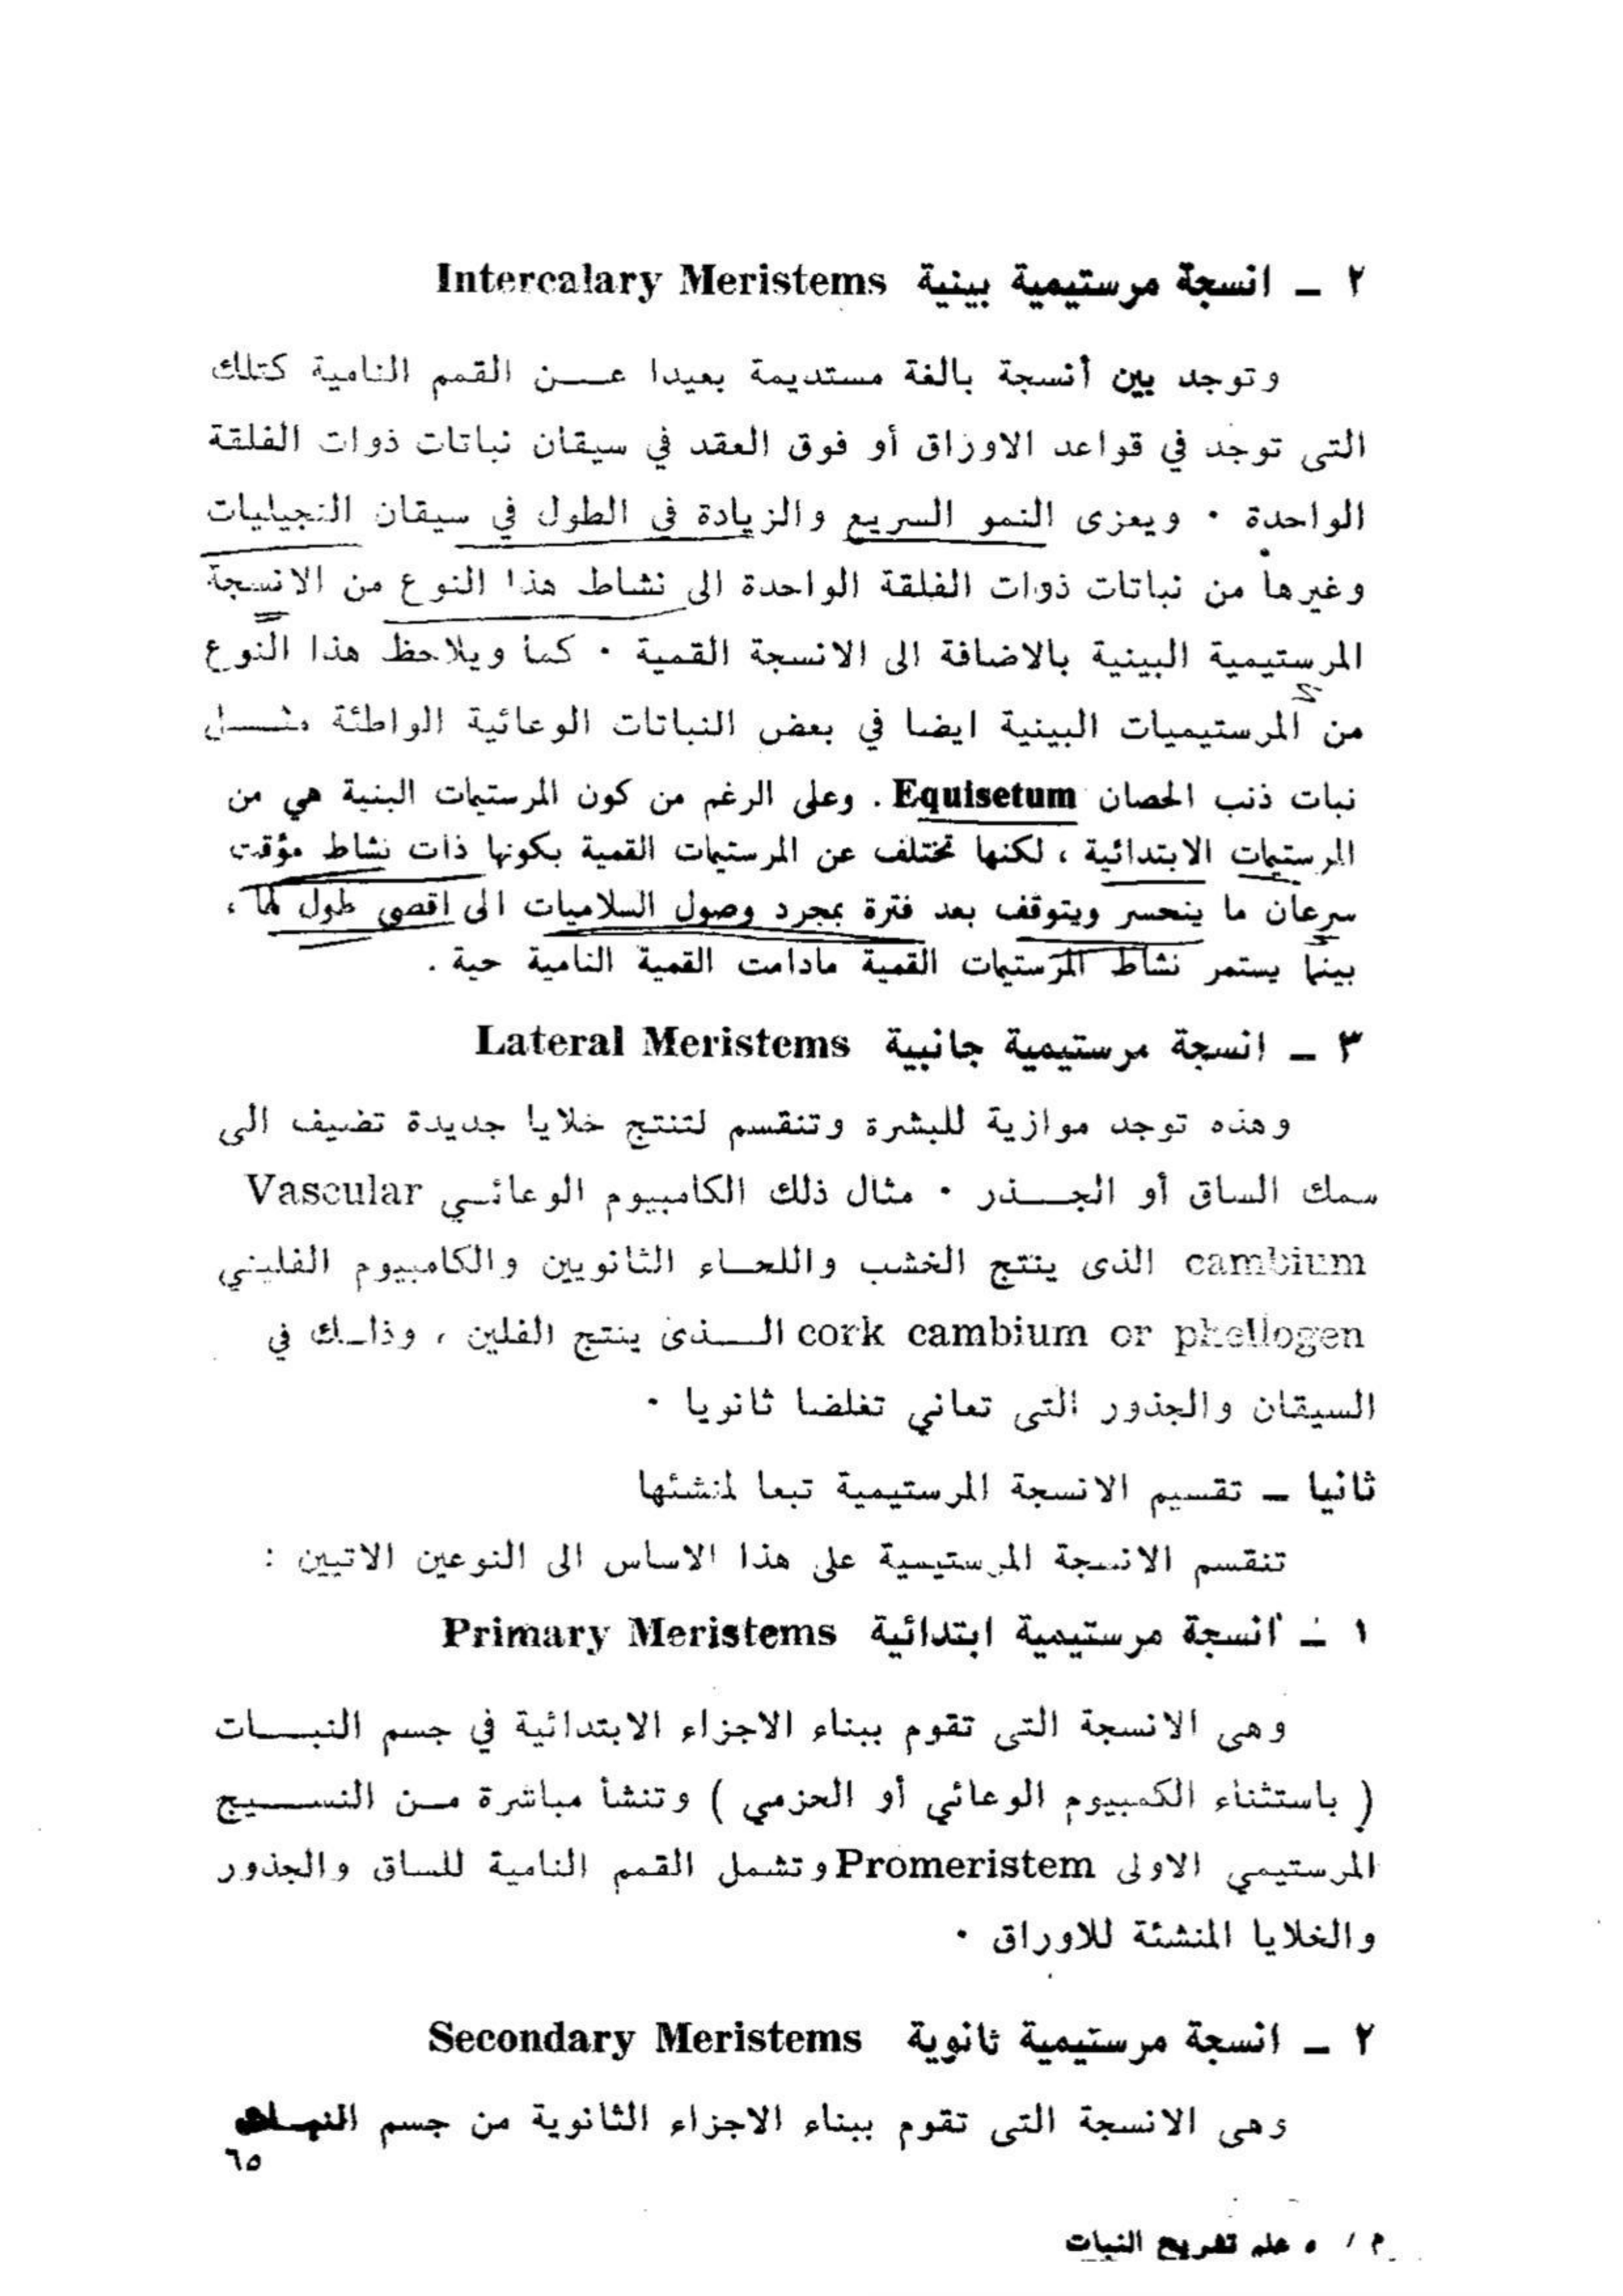 ٢ ـ انسجة مرستيمية بينية Intercalary Meristems
وتوجد بين أنسجة بالغة مستديمة بعيدا عــن القمم النامية كتلك
التى توجد في قواعد الاوراق أو فوق العقد في سيقان نباتات ذوات الفلقة
الواحدة ٠ ويعزى النمو السريع والزيادة في الطول في سيقان النجيليات
وغيرها من نباتات ذوات الفلقة الواحدة الى نشاط هذا النوع من الانسجة
المرستيمية البينية بالاضافة الى الانسجة القمية ٠ كما ويلاحظ هذا النوع
من المرستيميات البينية ايضا في بعض النباتات الوعائية الواطئة مثــل
نبات ذنب الحصان Equisetum . وعلى الرغم من كون المرستيمات البنية هي من
المرستيمات الابتدائية ، لكنها تختلف عن المرستيمات القمية بكونها ذات نشاط مؤقت
سرعان ما ينحسر ويتوقف بعد فترة بمجرد وصول السلاميات الى اقصى طول لها ،
بينما يستمر نشاط المرستيمات القمية مادامت القمية النامية حية .
٣ ـ انسجة مرستيمية جانبية Lateral Meristems
وهذه توجد موازية للبشرة وتنقسم لتنتج خلايا جديدة تضيف الى
سمك الساق أو الجــذر ٠ مثال ذلك الكامبيوم الوعائـي Vascular
cambium الذى ينتج الخشب واللحـاء الثانويين والكامبيوم الفليني
cork cambium or phellogen الــذى ينتج الفلين ، وذلـك في
السيقان والجذور التى تعاني تغلضا ثانويا ٠
ثانيا ـ تقسيم الانسجة المرستيمية تبعا لمنشئها
تنقسم الانسجة المرستيمية على هذا الاساس الى النوعين الاتيين :
١ ـ انسجة مرستيمية ابتدائية Primary Meristems
وهى الانسجة التى تقوم ببناء الاجزاء الابتدائية في جسم النبــات
( باستثناء الكمبيوم الوعائي أو الحزمي ) وتنشأ مباشرة مـن النســيج
المرستيمي الاولى Promeristem وتشمل القمم النامية للساق والجذور
والخلايا المنشئة للاوراق ٠
٢ ـ انسجة مرستيمية ثانوية Secondary Meristems
وهى الانسجة التى تقوم ببناء الاجزاء الثانوية من جسم
٦٥
م / ٥ علم تشريح النبات